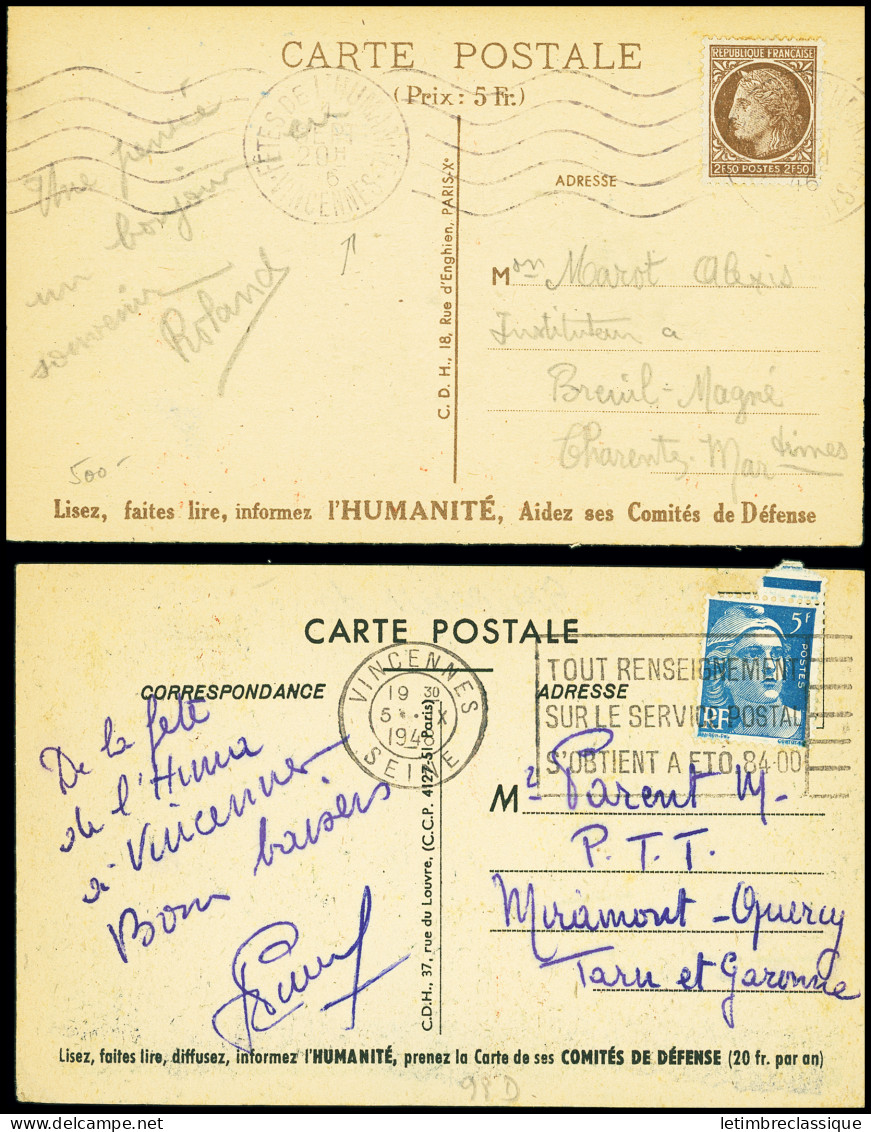 CARTE POSTALE
(Prix : 5 Fr.)
FÊTES DE L'HUMANITÉ
20H
VINCENNES
46
RÉPUBLIQUE FRANÇAISE
2F50 POSTES 2F50
Une pensée
un bonjour un
souvenir
Roland
500-
C. D. H., 18, Rue d'Enghien, PARIS-Xe
ADRESSE
Mon Marot Alexis
Instituteur a
Breuil-Magné
Charentes Mar times
Lisez, faites lire, informez l'HUMANITÉ, Aidez ses Comités de Défense
CARTE POSTALE
CORRESPONDANCE
ADRESSE
VINCENNES
19 30
5 . X
1948
SEINE
TOUT RENSEIGNEMENT
SUR LE SERVICE POSTAL
S'OBTIENT A ETO. 84-00
5F
POSTES
RF
De la fête
de l'Huma
à Vincennes
Bons baisers
C.D.H., 37, rue du Louvre, (C.C.P. 4127-51 Paris)
Mr Parent M.
P. T. T.
Miramont-Quercy
Tarn et Garonne
Lisez, faites lire, diffusez, informez l'HUMANITÉ, prenez la Carte de ses COMITÉS DE DÉFENSE (20 fr. par an)
98 D
delcampe.net
letimbreclassique